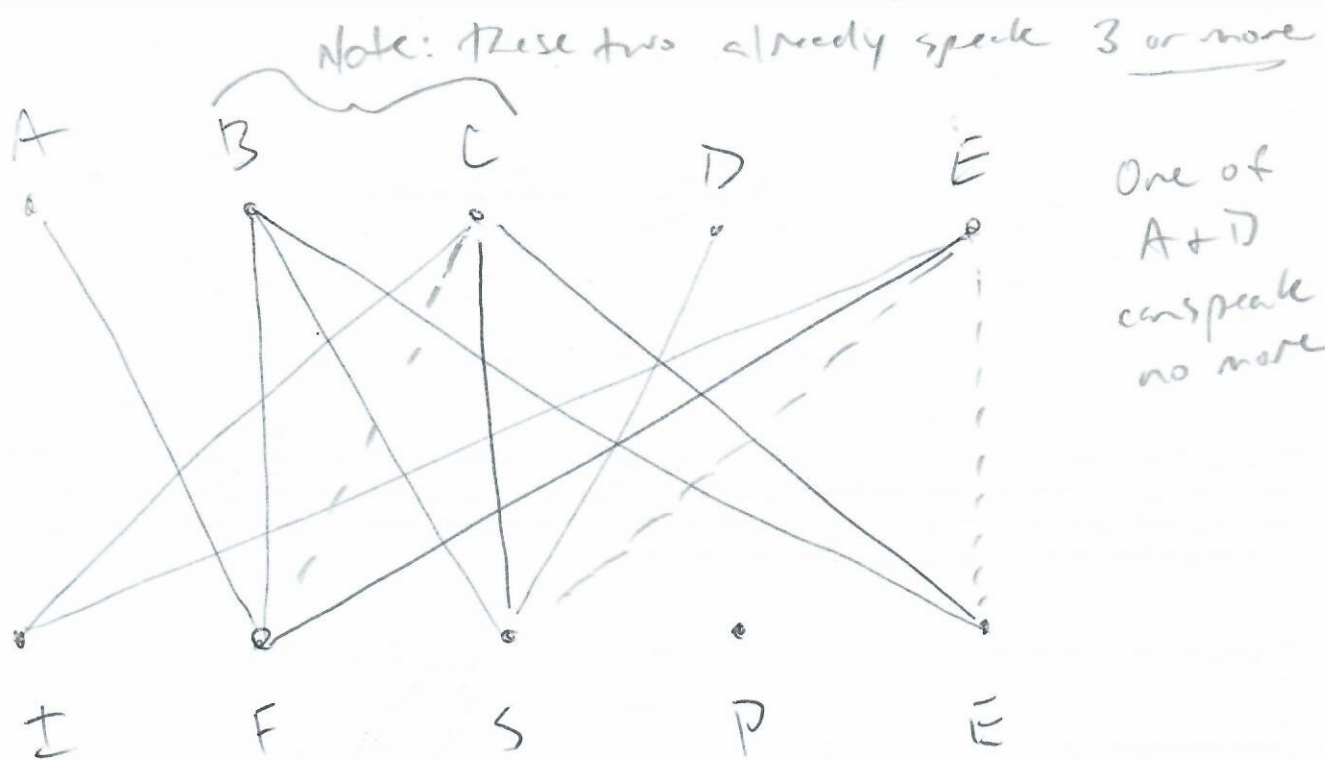 Note: these two already speak 3 or more
A B C D E
One of
A + D
can speak
no more
I F S P E